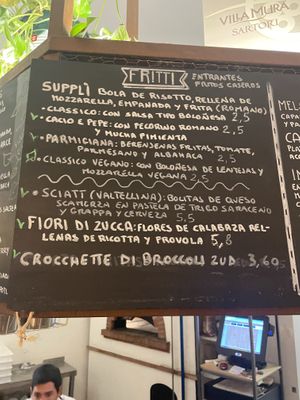 VILLA MURA
SARTORI
FRITTI
ENTRANTES
FRITOS CASEROS
SUPPLÌ BOLA DE RISOTTO, RELLENA DE
MOZZARELLA, EMPANADA Y FRITA (ROMANO)
- CLASSICO: CON SALSA TIPO BOLOÑESA 2,5
- CACIO E PEPE: CON PECORINO ROMANO 2,5
Y MUCHA PIMIENTA
- PARMIGIANA: BERENJENAS FRITAS, TOMATE
PARMESANO Y ALBAHACA 2,5
CLASSICO VEGANO: CON BOLOÑESA DE LENTEJAS Y
MOZZARELLA VEGANA 2,5
• SCIATT (VALTELLINA): BOLITAS DE QUESO
EN PASTELA DE TRIGO SARACENO
Y GRAPPA Y CERVEZA 5,5
FIORI DI ZUCCA: FLORES DE CALABAZA REL-
LENAS DE RICOTTA Y PROVOLA 5,8
CROCCHETTE DI BROCCOLI 2UD 3,60